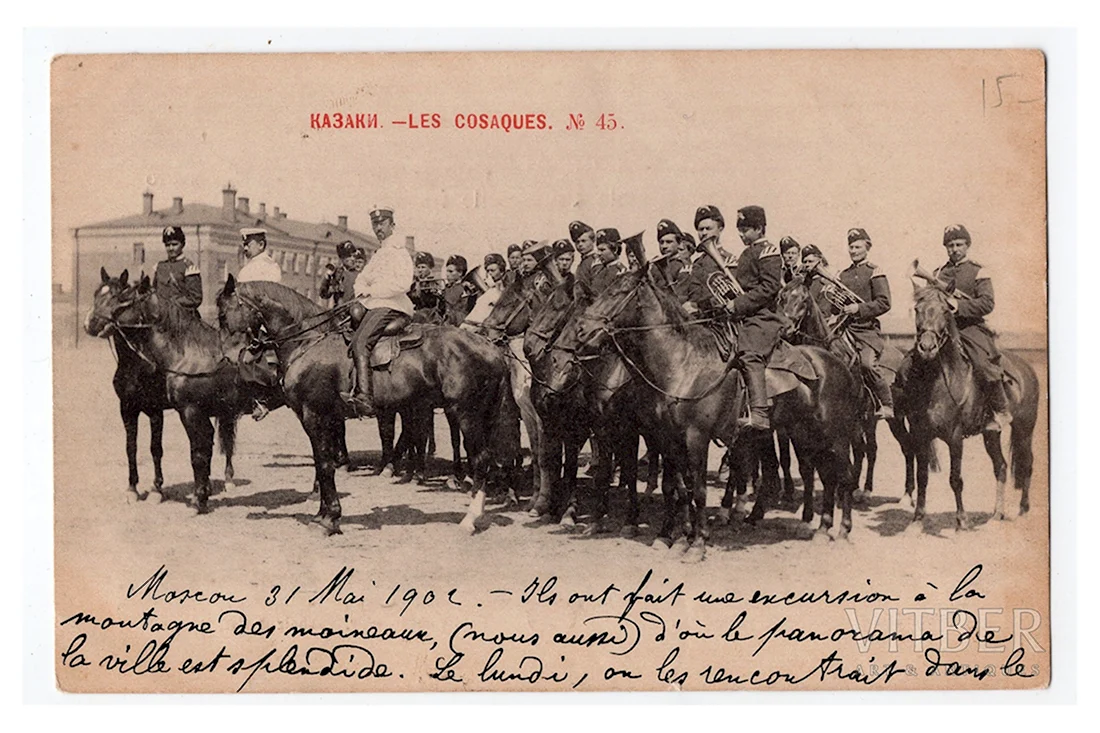 15-
КАЗАКИ. — LES COSAQUES. № 45.
Moscou 31 Mai 1902. - Ils ont fait une excursion à la
montagne des moineaux, (nous aussi) d'où le panorama de
la ville est splendide. Le lundi, on les rencontrait dans le
VITBER
ART & ANTIQUES